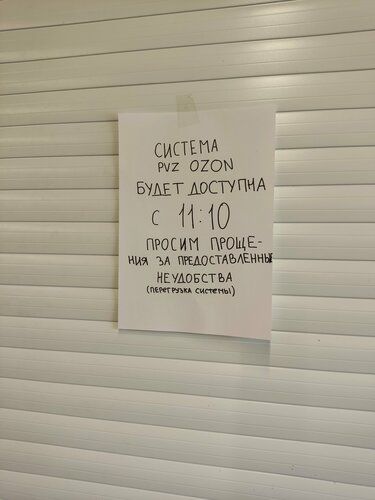 СИСТЕМА
PVZ OZON
БУДЕТ ДОСТУПНА
С 11:10
ПРОСИМ ПРОЩЕ-
НИЯ ЗА ПРЕДОСТАВЛЕННЫЕ
НЕУДОБСТВА
(ПЕРЕГРУЗКА СИСТЕМЫ)